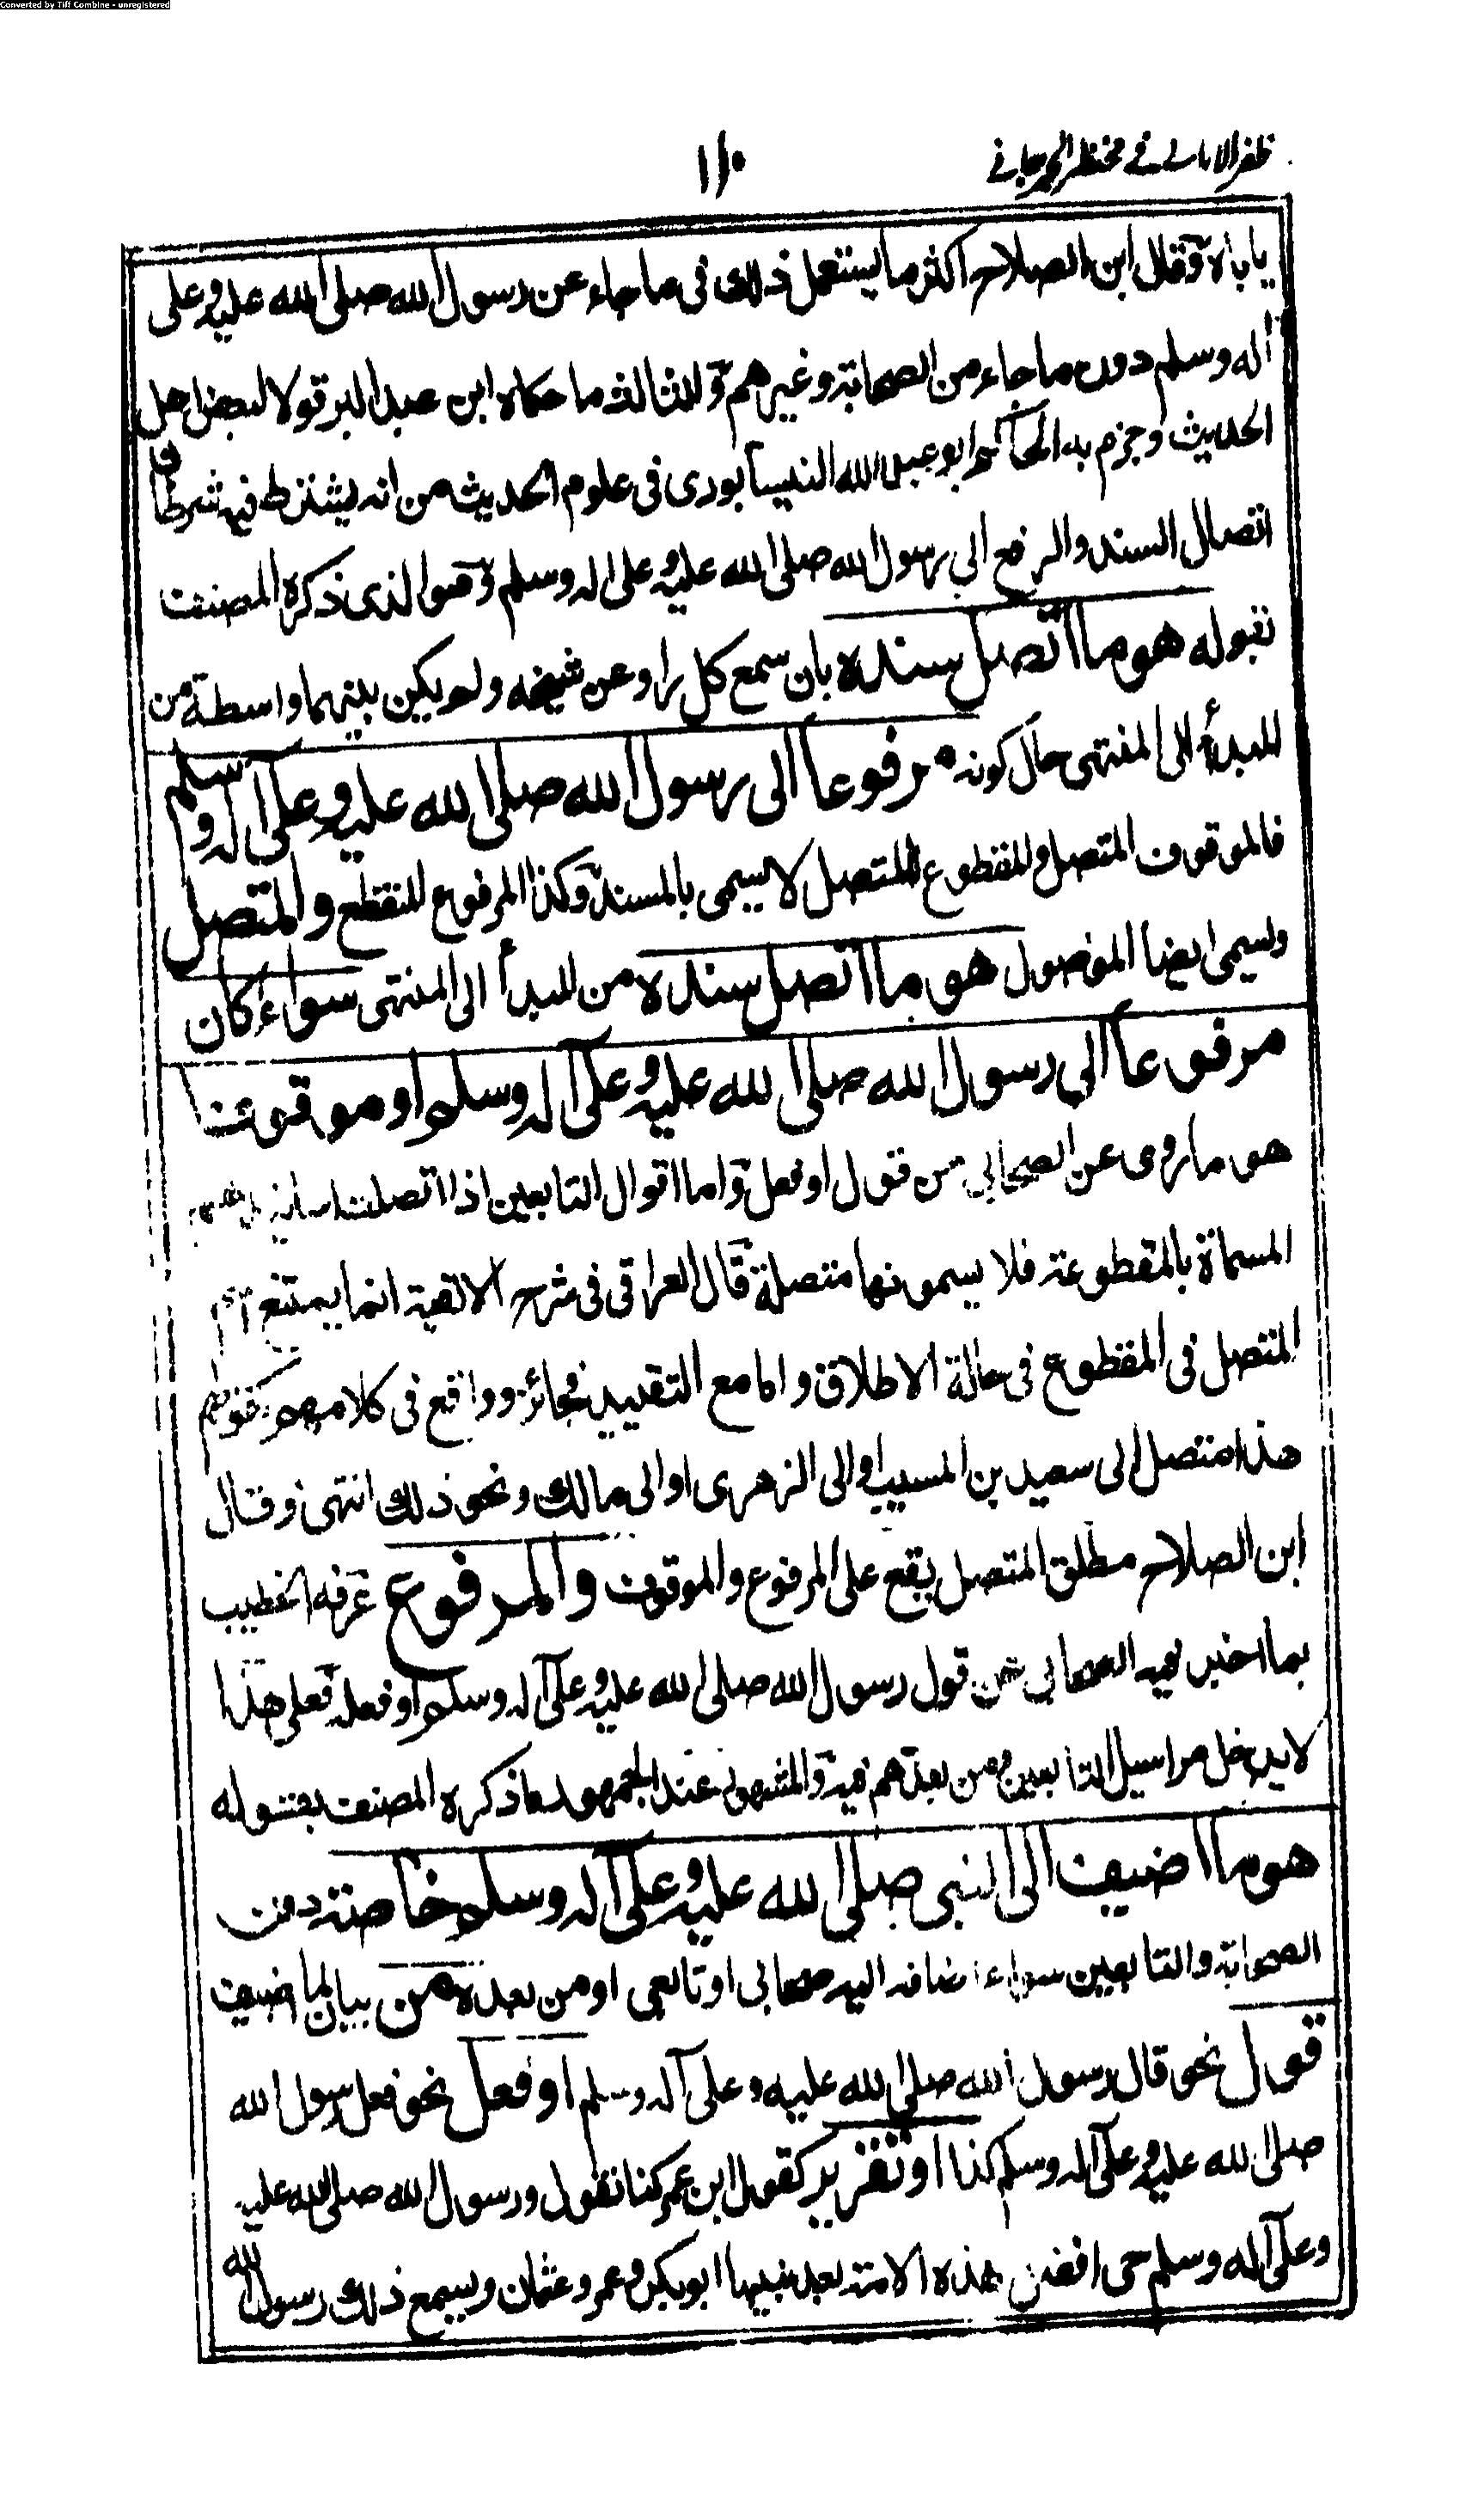 Converted by Tiff Combine - unregistered
ظفر الامانی فی مختصر الجرجانی
۱۱۰
یاباه وقال ابن الصلاح اکثر ما یستعمل ذلک فی ما جاء عن رسول الله صلی الله علیه وعلی
آله وسلم دون ما جاء من الصحابة وغیرهم والثالث ما حکاه ابن عبد البر قولا لبعض اهل
الحدیث وجزم به الحاکم ابو عبد الله النیسابوری فی علوم الحدیث من انه یشترط فیه شرطان
اتصال السند والرفع الی رسول الله صلی الله علیه وعلی اله وسلم وهو الذی ذکره المصنف
بقوله هو ما اتصل سنده بان سمع کل راو عن شیخه ولم یکن بینهما واسطة من
المبدأ الی المنتهی حال کونه مرفوعا الی رسول الله صلی الله علیه وعلی آله وسلم
فالموقوف المتصل والمقطوع المتصل لا یسمی بالمسند وکذا المرفوع المنقطع والمتصل
ویسمی ایضا الموصول هو ما اتصل سنده من المبدأ الی المنتهی سواء کان
مرفوعا الی رسول الله صلی الله علیه وعلی آله وسلم او موقوفا
هو ما روی عن الصحابی من قول او فعل واما اقوال التابعین اذا اتصلت اسانید
المسماة بالمقطوعة فلا یسمونها متصلة قال العراقی فی شرح الالفیة انما یمتنع اسم
المتصل فی المقطوع فی حالة الاطلاق واما مع التقیید فجائز وواقع فی کلامهم کقولهم
هذا متصل الی سعید بن المسیب او الی الزهری او الی مالک ونحو ذلک انتهی وقال
ابن الصلاح مطلق المتصل یقع علی المرفوع والموقوف والمرفوع عرفه الخطیب
بما اخبر فیه الصحابی عن قول رسول الله صلی الله علیه وعلی آله وسلم او فعله فعلی هذا
لا یدخل مراسیل التابعین ومن بعدهم فیه والمشهور عند الجمهور ما ذکره المصنف بقوله
هو ما اضیف الی النبی صلی الله علیه وعلی آله وسلم خاصة دون
الصحابة والتابعین سواء اضافه الیه صحابی او تابعی او من بعده من بیان لما اضیف
قول نحو قال رسول الله صلی الله علیه وعلی آله وسلم او فعل نحو فعل رسول الله
صلی الله علیه وعلی آله وسلم کذا او تقریر کقول ابن عمر کنا نقول ورسول الله صلی الله علیه
وعلی آله وسلم حی افضل هذه الامة بعد نبیها ابو بکر وعمر وعثمان ویسمع ذلک رسول الله